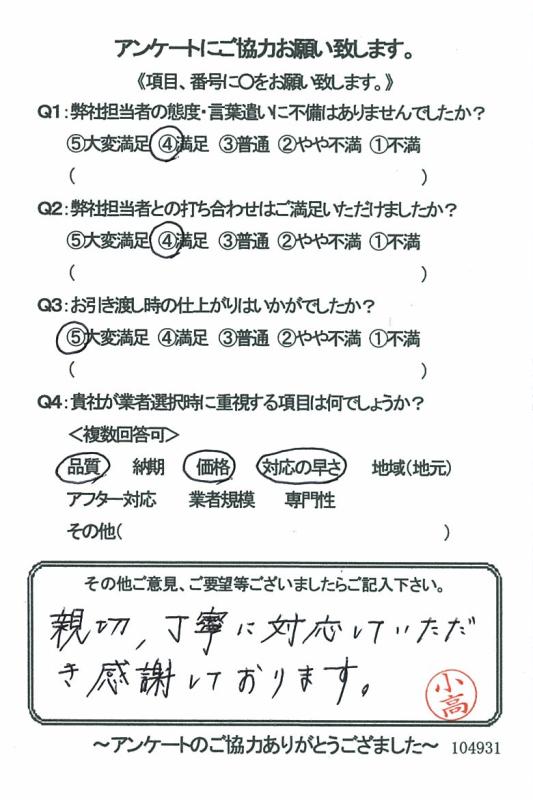 アンケートにご協力お願い致します。
《項目、番号に〇をお願い致します。》
Q1:弊社担当者の態度・言葉遣いに不備はありませんでしたか?
⑤大変満足 ④満足 ③普通 ②やや不満 ①不満
( )
Q2:弊社担当者との打ち合わせはご満足いただけましたか?
⑤大変満足 ④満足 ③普通 ②やや不満 ①不満
( )
Q3:お引き渡し時の仕上がりはいかがでしたか?
⑤大変満足 ④満足 ③普通 ②やや不満 ①不満
( )
Q4:貴社が業者選択時に重視する項目は何でしょうか?
<複数回答可>
品質 納期 価格 対応の早さ 地域(地元)
アフター対応 業者規模 専門性
その他( )
その他ご意見、ご要望等ございましたらご記入下さい。
親切,丁寧に対応していただ
き感謝しております。
小高
~アンケートのご協力ありがとうござました~ 104931